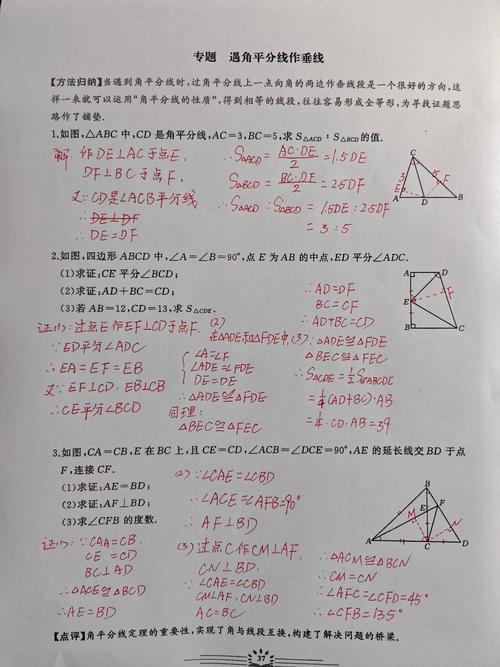 专题 遇角平分线作垂线
【方法归纳】当遇到角平分线时,过角平分线上一点向角的两边作垂线段是一个很好的方向,这
样一来就可以运用“角平分线的性质”,得到相等的线段,往往容易形成全等形,为寻找证题思
路作了铺垫.
1.如图,△ABC 中,CD 是角平分线,AC=3,BC=5,求 S△ACD : S△BCD的值.
解:作DE⊥AC于点E,
DF⊥BC于点F,
又∵CD是∠ACB平分线
∴DE⊥DF
∴DE=DF
∴S△ACD=AC·DE/2=1.5DE
S△BCD=BC·DF/2=2.5DF
∴S△ACD:S△BCD=1.5DE:2.5DF
=3:5
C
3
5
E
F
A
D
B
2.如图,四边形 ABCD 中,∠A=∠B=90°,点 E 为 AB 的中点,ED 平分∠ADC.
(1)求证:CE 平分∠BCD;
(2)求证:AD+BC=CD;
(3)若 AB=12,CD=13,求 S△CDE.
证(1):过点E作EF⊥CD于点F.
∵ED平分∠ADC
∴EA=EF=EB
又∵EF⊥CD,EB⊥CB
∴CE平分∠BCD
(2)
在△ADE和△FDE中,
∠A=∠F
∠ADE=∠FDE
DE=DE
∴△ADE≌△FDE
同理:
△BEC≌△FEC
∴AD=DF
BC=CF
∴AD+BC=CD
(3)∵△ADE≌△FDE
△BEC≌△FEC
∴S△CDE=1/2S梯ABCD
=1/4(AD+BC)·AB
=1/4·CD·AB=39
A
D
F
E
B
C
3.如图,CA=CB,E 在 BC 上,且 CE=CD,∠ACB=∠DCE=90°,AE 的延长线交 BD 于点
F,连接 CF.
(1)求证:AE=BD;
(2)求证:AF⊥BD;
(3)求∠CFB 的度数.
证(1):∵CA=CB
CE=CD
BC⊥AD
∴△ACE≌△BCD
∴AE=BD
(2)∵∠CAE=∠CBD
∴∠ACE=∠AFB=90°
∴AF⊥BD
(3)过点C作CM⊥AF
CN⊥BD.
∵∠CAE=∠CBD
CM⊥AF,CN⊥BD
AC=BC
∴△ACM≌△BCN
∴CM=CN
∴∠AFC=∠CFD=45°
∴∠CFB=135°
B
F
E
M
N
A
C
D
【点评】角平分线定理的重要性,实现了角与线段互换,构建了解决问题的桥梁.
37